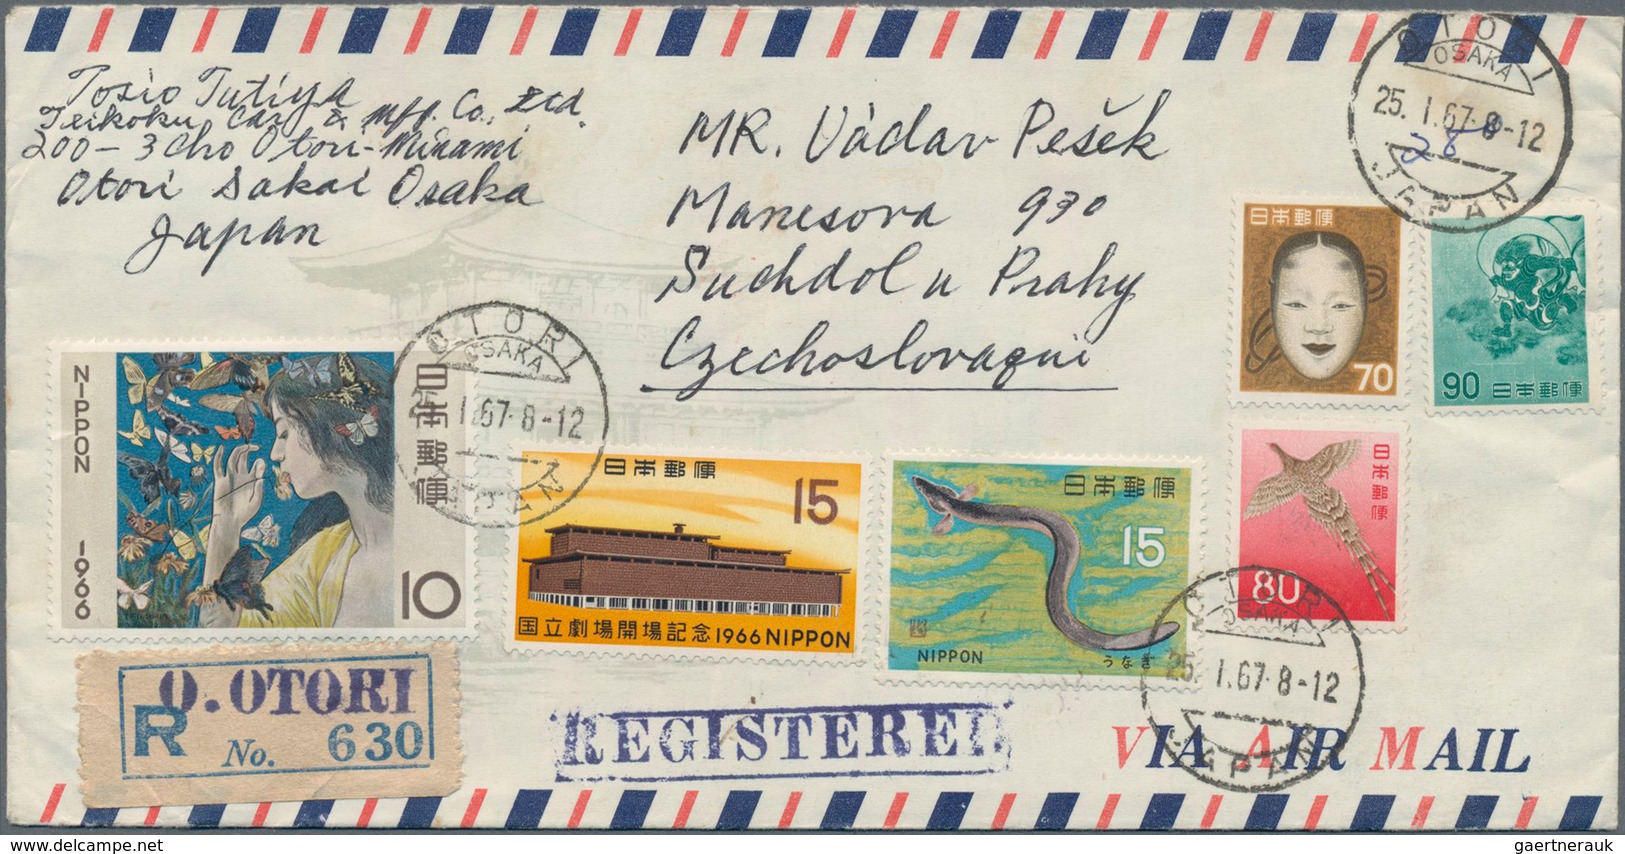 Tosio Tutiya
Teikoku Car & Mfg. Co., Ltd.
200-3 Cho Otori-Minami
Otori Sakai Osaka
Japan
MR. Václav Pešek
Manesova 930
Suchdol u Prahy
Czechoslovaquie
OTORI
OSAKA
25. I. 67. 8-12
28
JAPAN
日本郵便
70
90 日本郵便
日本郵便
80
OTORI
OSAKA
I. 67. 8-12
JAPAN
NIPPON 1966
日本郵便
10
日本郵便
15
国立劇場開場記念 1966 NIPPON
日本郵便
15
NIPPON
うなぎ
OTORI
OSAKA
25. I. 67. 8-12
JAPAN
O. OTORI
R No. 630
REGISTERED
VIA AIR MAIL
gaertnerauk